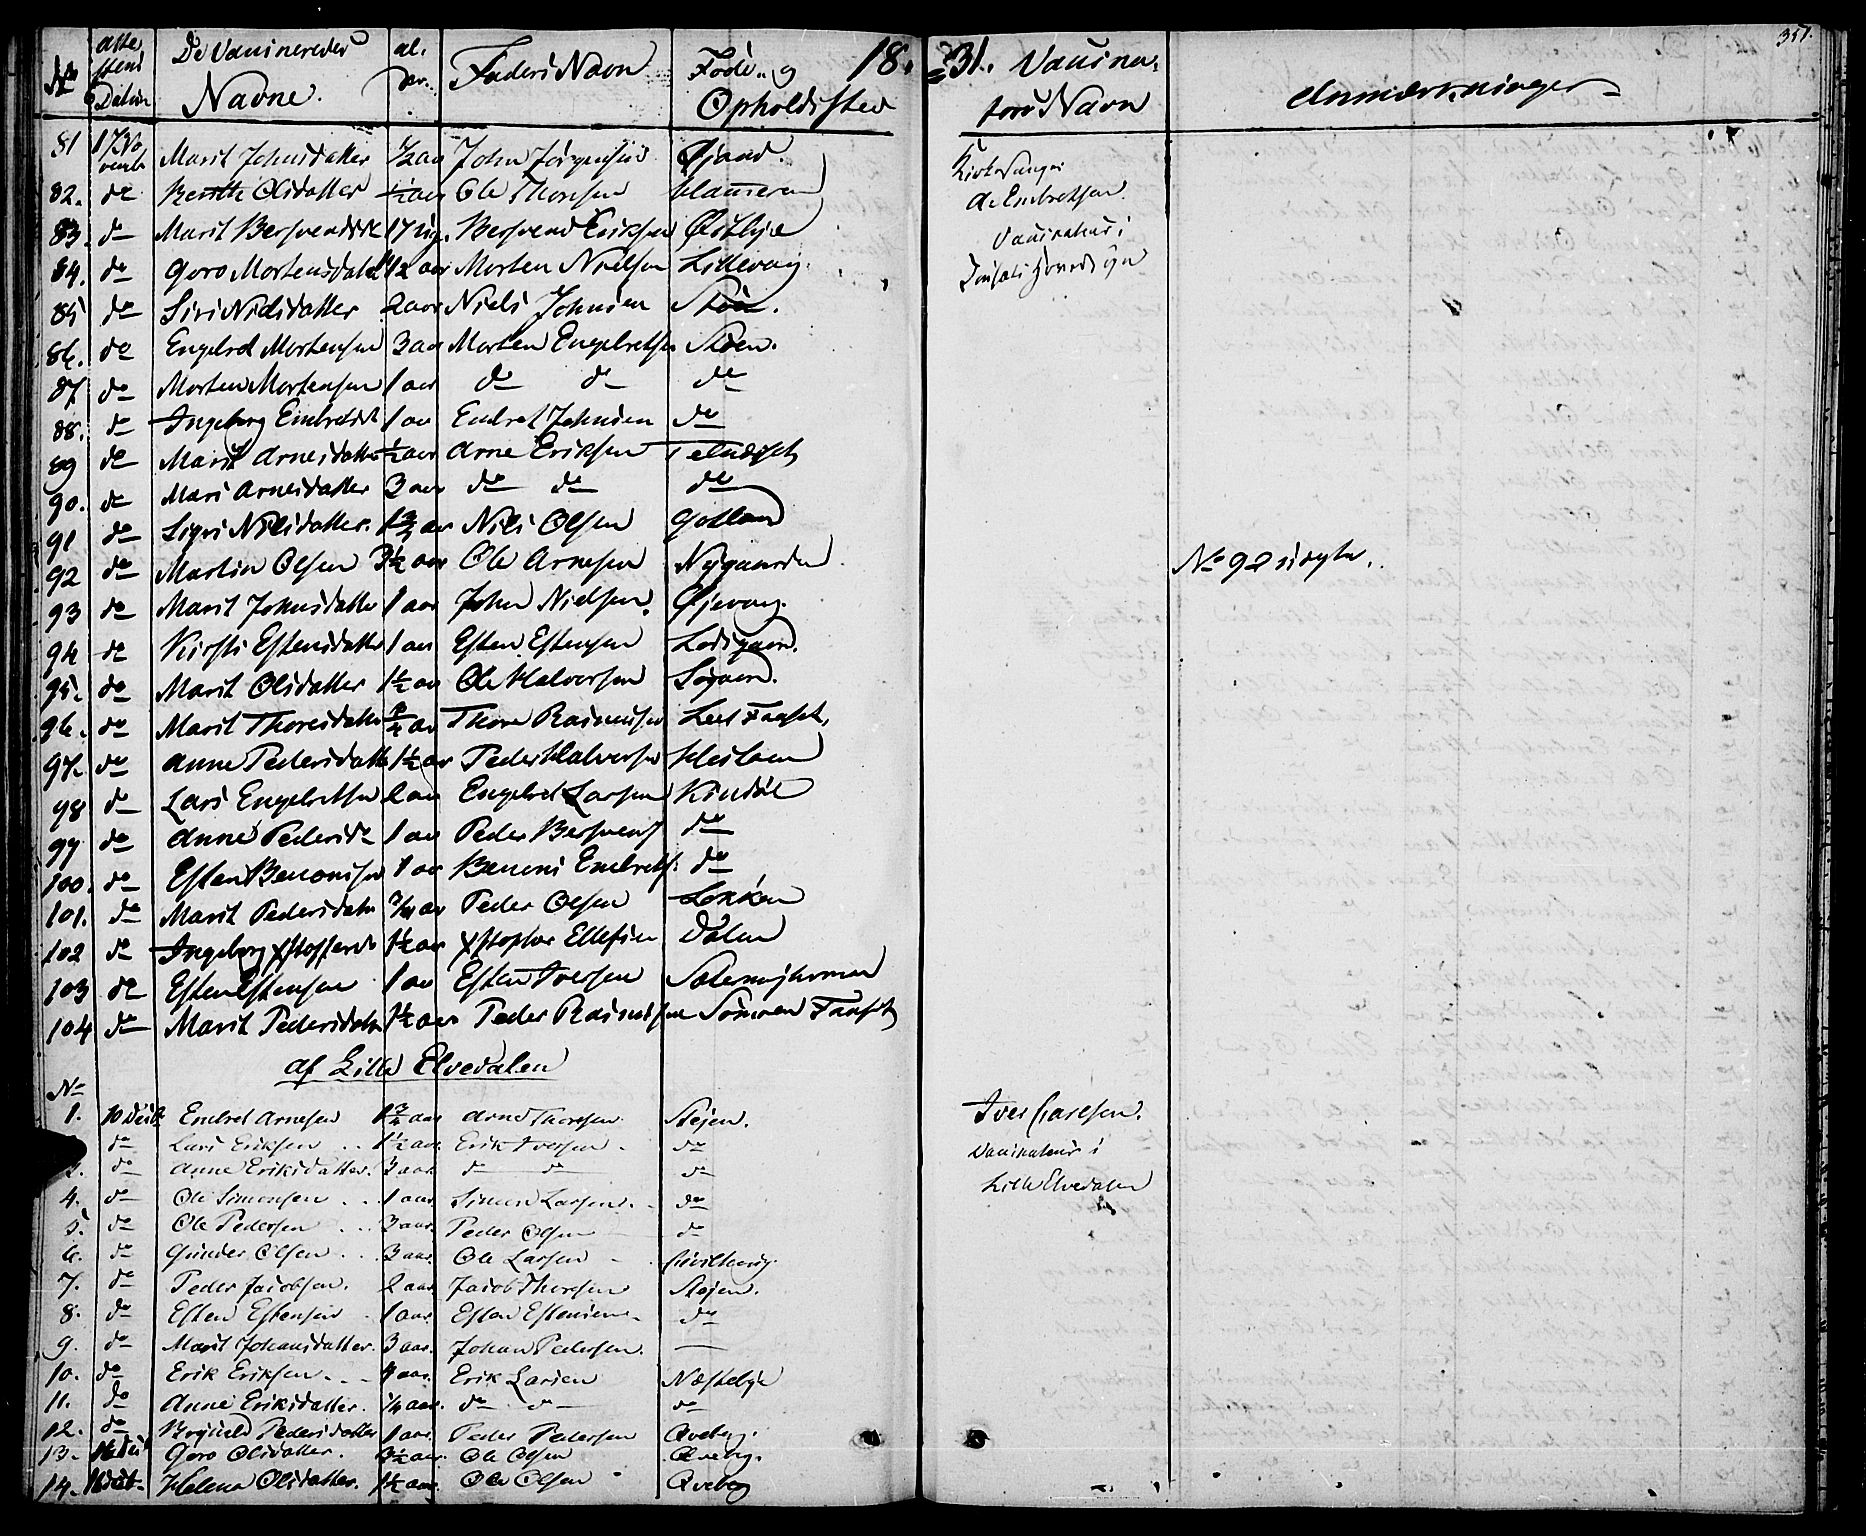 No Attestens Datum De Vaccineredes Navne. al. der. Faders Navn Føde.. og Opholdssted 18. 31. Vaccina, tors Navn Anmærkninger 351.
81 Marit Johnsdatter 1/2 aar John Jørgensen Øjaad. Kirkesanger
82. do Berith Olsdatter 1/2 aar Ole Thoresen A. Embretsen
83. do Marit Bersvendsdt 17 Bersvend Eriksen Østbye Vaccinateur i
84. do Goro Mortensdatt 1 1/2 aar Morten Nielsen Lillevang Tonsæts Hovedsogn
85 do Siri Nielsdatter 2 aar Niels Johnsen Støen.
86. do Engebret Mortensen 3 aar Morten Engebretsen Støen.
87 do Morten Mortensen 1 aar do do do
88. do Ingeborg Embretsdt 1 aar Embret Johnsen do
89 do Marit Arnesdatter 1/2 aar Arne Eriksen
90. do Mari Arnesdatter 3 aar do do do
91 do Sigri Nilsdatter. aar Nils Olsen Gotland
92 do Martin Olsen 3 1/2 aar Ole Arnesen Nygaarden No 92
93 do Marit Johnsdatter 1 aar John Nielsen. Øjevang.
94 do Kirsti Estensdatter 1 aar Esten Estensen Lodsgaard.
95. do Marit Olsdatter 1 1/2 aar Ole Halvorsen
96. do Marit Thoresdatter aar Thore Rasmussen Faaset,
97. do Anne Pedersdatt 1 1/2 aar Peder Halvorsen
98 do Lars Engebretsen 2 aar Engebret Larsen Kindøl
99 do Anne Pedersdr 1 aar Peder Bersvends do
100. do Esten Benonisen 1 aar Benoni Embrets. do
101. do Marit Pedersdatter aar Peder Olsen Løkken
102 do Ingeborg Xstoffersdt 1 1/2 aar Xstopher Ellefsen Dalen
103 do Esten Estensen 1 aar Esten Iversen
104 do Marit Pedersdatter 1 1/2 aar Peder Rasmussen Faaset
af Lille Elvedalen
No
1. 10 Decbr Embret Arnesen 1 3/4 aar Arne Thoresen Stejen. Iver Carlsen.
do Lars Eriksen .. 1 1/2 aar. Erik Iversen . do Vaccinateur i
do Anne Eriksdatter. 3 aar. do do do Lille Elvedalen
4. do Ole Simonsen ... 1 aar Simen Larsen . do
5. do Ole Pedersen ... 3 aar. Peder Olsen do
6. do Gunder Olsen .. 3 aar. Ole Larsen
7. do Peder Jacobsen. 2 aar Jacob Thoresen Stejen.
8. do Esten Estensen . 1 aar. Esten Estensen do
9. do Marit Johansdatter. 3 aar. Johan Pedersen.
10. do Erik Eriksen .. 4 aar. Erik Larsen Næstebye
11. do Anne Eriksdatter. 1/4 aar. do do do
12. do Bryneld Pedersdatter 1 aar. Peder Pedersen Qveberg.
13. Goro Olsdatter. 3 1/2 aar. Ole Olsen Qveberg.
14. Helena Olsdatter. 1 1/2 aar. Ole Olsen Qveberg